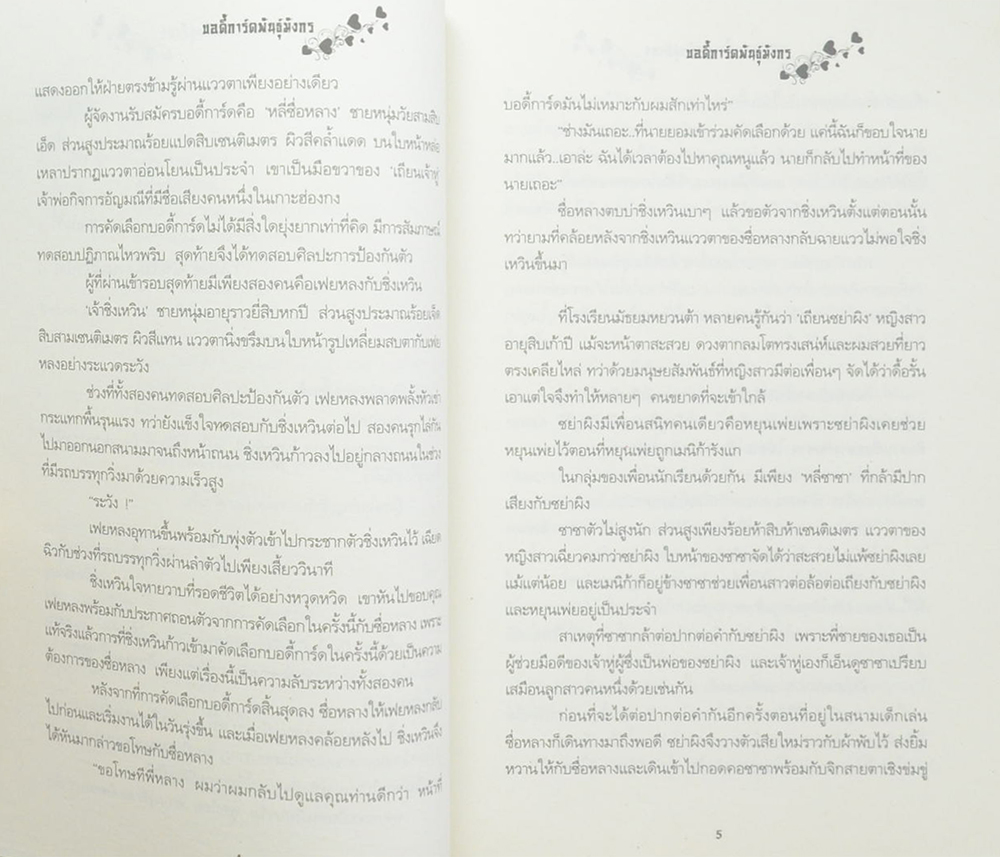 บอดี้การ์ดพันธุ์มังกร
แสดงออกให้ฝ่ายตรงข้ามรู้ผ่านแววตาเพียงอย่างเดียว
ผู้จัดงานรับสมัครบอดี้การ์ดคือ ‘หลี่ซื่อหลาง’ ชายหนุ่มวัยสามสิบ
เอ็ด ส่วนสูงประมาณร้อยแปดสิบเซนติเมตร ผิวสีคล้ำแดด บนใบหน้าหล่อ
เหลาปรากฏแววตาอ่อนโยนเป็นประจำ เขาเป็นมือขวาของ ‘เถียนเจ้าหู่’
เจ้าพ่อกิจการอัญมณีที่มีชื่อเสียงคนหนึ่งในเกาะฮ่องกง
การคัดเลือกบอดี้การ์ดไม่ได้มีสิ่งใดยุ่งยากเท่าที่คิด มีการสัมภาษณ์
ทดสอบปฏิภาณไหวพริบ สุดท้ายจึงได้ทดสอบศิลปะการป้องกันตัว
ผู้ที่ผ่านเข้ารอบสุดท้ายมีเพียงสองคนคือเฟยหลงกับซิ่งเหวิน
‘เจ้าซิ่งเหวิน’ ชายหนุ่มอายุราวยี่สิบหกปี ส่วนสูงประมาณร้อยเจ็ด
สิบสามเซนติเมตร ผิวสีแทน แววตานิ่งขรึมบนใบหน้ารูปเหลี่ยมสบตากับเฟย
หลงอย่างระแวดระวัง
ช่วงที่ทั้งสองคนทดสอบศิลปะป้องกันตัว เฟยหลงพลาดพลั้งหัวเข่า
กระแทกพื้นรุนแรง ทว่ายังแข็งใจทดสอบกับซิ่งเหวินต่อไป สองคนรุกไล่กัน
ไปมาออกนอกสนามมาจนถึงหน้าถนน ซิ่งเหวินก้าวลงไปอยู่กลางถนนในช่วง
ที่มีรถบรรทุกวิ่งมาด้วยความเร็วสูง
“ระวัง !”
เฟยหลงอุทานขึ้นพร้อมกับพุ่งตัวเข้าไปกระชากตัวซิ่งเหวินไว้ เฉียด
ฉิวกับช่วงที่รถบรรทุกวิ่งผ่านลำตัวไปเพียงเสี้ยววินาที
ซิ่งเหวินใจหายวาบที่รอดชีวิตได้อย่างหวุดหวิด เขาหันไปขอบคุณ
เฟยหลงพร้อมกับประกาศถอนตัวจากการคัดเลือกในครั้งนี้กับซื่อหลาง เพราะ
แท้จริงแล้วการที่ซิ่งเหวินก้าวเข้ามาคัดเลือกบอดี้การ์ดในครั้งนี้ด้วยเป็นความ
ต้องการของซื่อหลาง เพียงแต่เรื่องนี้เป็นความลับระหว่างทั้งสองคน
หลังจากที่การคัดเลือกบอดี้การ์ดสิ้นสุดลง ซื่อหลางให้เฟยหลงกลับ
ไปก่อนและเริ่มงานได้ในวันรุ่งขึ้น และเมื่อเฟยหลงคล้อยหลังไป ซิ่งเหวินจึง
ได้หันมากล่าวขอโทษกับซื่อหลาง
“ขอโทษทีพี่หลาง ผมว่าผมกลับไปดูแลคุณท่านดีกว่า หน้าที่
บอดี้การ์ดพันธุ์มังกร
บอดี้การ์ดมันไม่เหมาะกับผมสักเท่าไหร่”
“ช่างมันเถอะ..ที่นายยอมเข้าร่วมคัดเลือกด้วย แค่นี้ฉันก็ขอบใจนาย
มากแล้ว..เอาล่ะ ฉันได้เวลาต้องไปหาคุณหนูแล้ว นายก็กลับไปทำหน้าที่ของ
นายเถอะ”
ซื่อหลางตบบ่าซิ่งเหวินเบาๆ แล้วขอตัวจากซิ่งเหวินตั้งแต่ตอนนั้น
ทว่ายามที่คล้อยหลังจากซิ่งเหวินแววตาของซื่อหลางกลับฉายแววไม่พอใจซิ่ง
เหวินขึ้นมา
ที่โรงเรียนมัธยมหยวนต้า หลายคนรู้กันว่า ‘เถียนซย่าผิง’ หญิงสาว
อายุสิบเก้าปี แม้จะหน้าตาสะสวย ดวงตากลมโตทรงเสน่ห์และผมสวยที่ยาว
ตรงเคลียไหล่ ทว่าด้วยมนุษยสัมพันธ์ที่หญิงสาวมีต่อเพื่อนๆ จัดได้ว่าดื้อรั้น
เอาแต่ใจจึงทำให้หลายๆ คนขยาดที่จะเข้าใกล้
ซย่าผิงมีเพื่อนสนิทคนเดียวคือหยุนเฟยเพราะซย่าผิงเคยช่วย
หยุนเฟยไว้ตอนที่หยุนเฟยถูกเมนิก้ารังแก
ในกลุ่มของเพื่อนนักเรียนด้วยกัน มีเพียง ‘หลี่ซาซา’ ที่กล้ามีปาก
เสียงกับซย่าผิง
ซาซาตัวไม่สูงนัก ส่วนสูงเพียงร้อยห้าสิบห้าเซนติเมตร แววตาของ
หญิงสาวเฉี่ยวคมกว่าซย่าผิง ใบหน้าของซาซาจัดได้ว่าสะสวยไม่แพ้ซย่าผิงเลย
แม้แต่น้อย และเมนิก้าก็อยู่ข้างซาซาช่วยเพื่อนสาวต่อล้อต่อเถียงกับซย่าผิง
และหยุนเฟยอยู่เป็นประจำ
สาเหตุที่ซาซากล้าต่อปากต่อคำกับซย่าผิง เพราะพี่ชายของเธอเป็น
ผู้ช่วยมือดีของเจ้าหู่ผู้ซึ่งเป็นพ่อของซย่าผิง และเจ้าหู่เองก็เอ็นดูซาซาเปรียบ
เสมือนลูกสาวคนหนึ่งด้วยเช่นกัน
ก่อนที่จะได้ต่อปากต่อคำกันอีกครั้งตอนที่อยู่ในสนามเด็กเล่น
ซื่อหลางก็เดินทางมาถึงพอดี ซย่าผิงจึงวางตัวเสียใหม่ราวกับผ้าพับไว้ ส่งยิ้ม
หวานให้กับซื่อหลางและเดินเข้าไปกอดคอซาซาพร้อมกับจิกสายตาเชิงข่มขู่
5